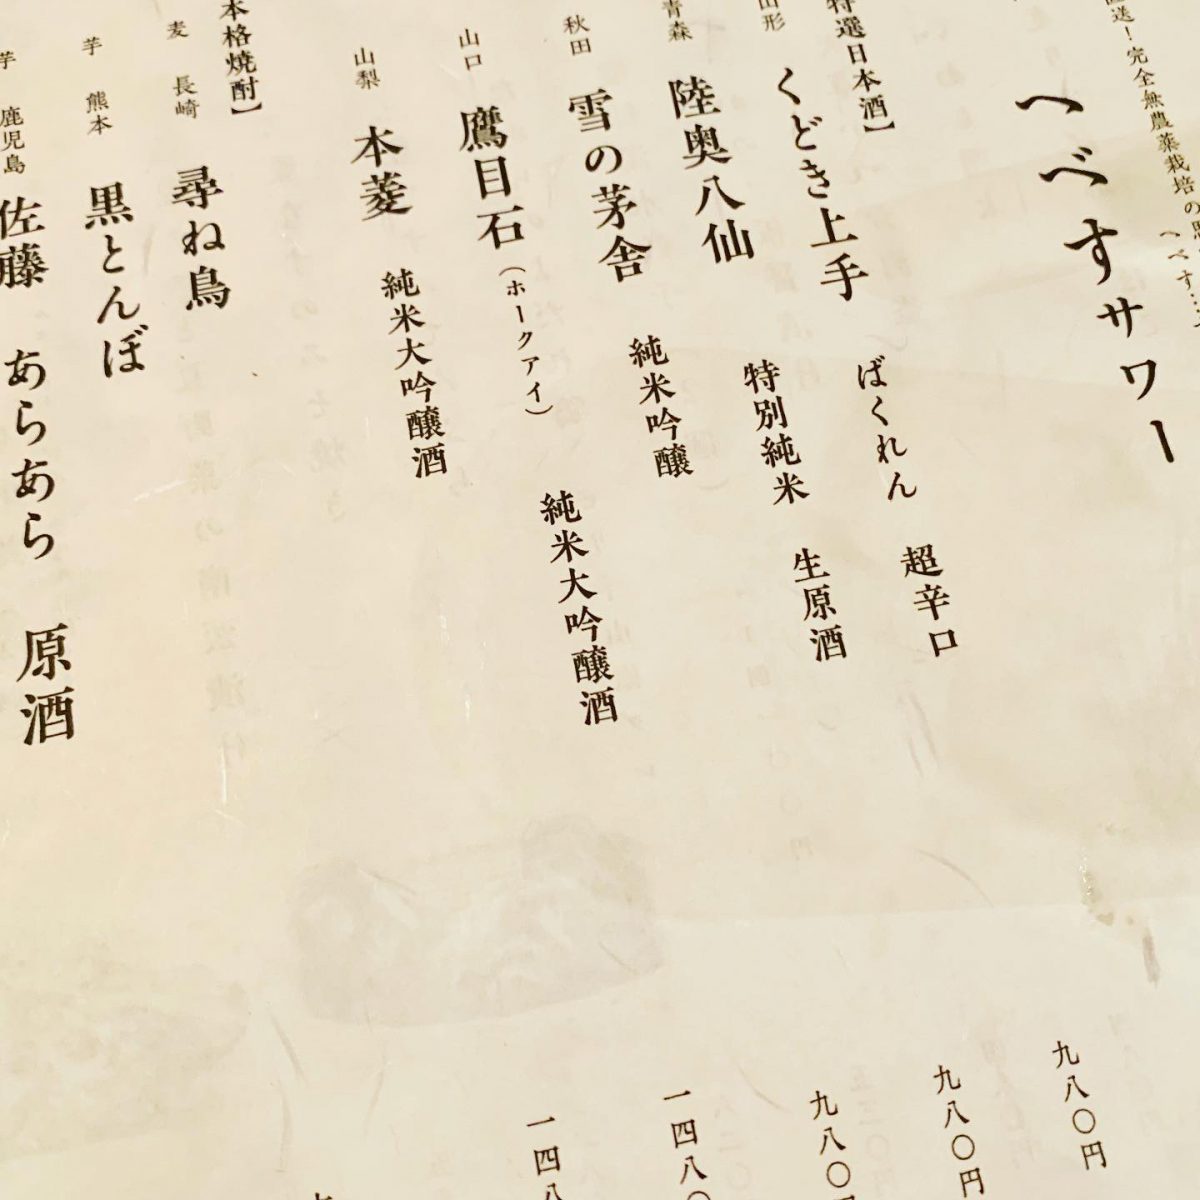 送！完全無農薬栽培の
へべす…
へべすサワー
特選日本酒】
山形 くどき上手 ばくれん 超辛口 九八〇円
青森 陸奥八仙 特別純米 生原酒 九八〇円
秋田 雪の茅舎 純米吟醸 九八〇円
山口 鷹目石（ホークアイ） 純米大吟醸酒 一四八〇
山梨 本菱 純米大吟醸酒 一四八
本格焼酎】
麦 長崎 尋ね鳥
芋 熊本 黒とんぼ
芋 鹿児島 佐藤 あらあら 原酒